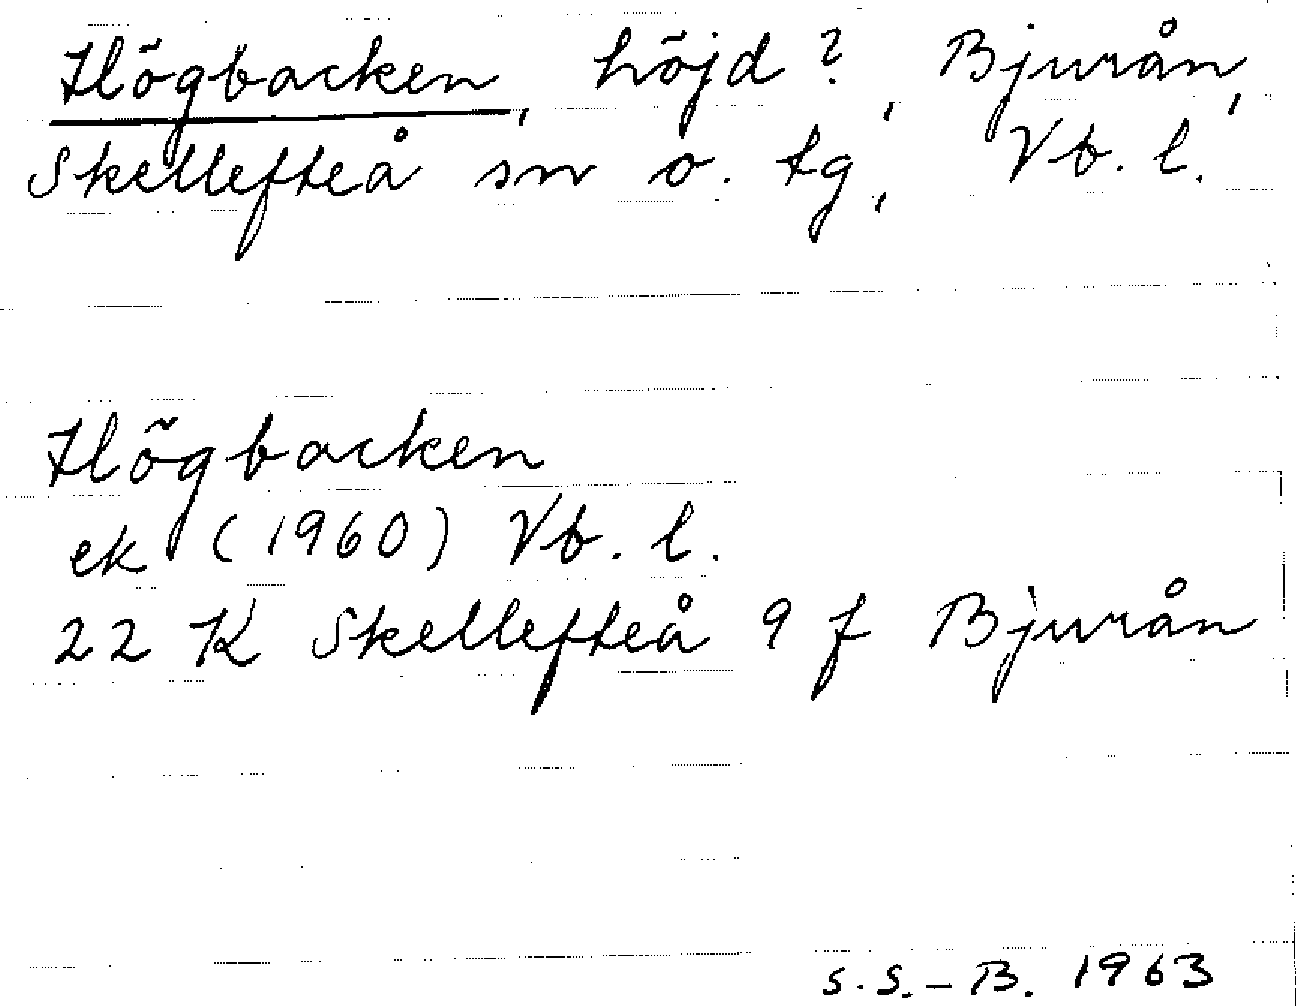 Högbacken, höjd?, Bjurån,
Skellefteå sn o. tg, Vb. l.
Högbacken
ek (1960) Vb. l.
22 K Skellefteå 9 f Bjurån
S.S.-B. 1963